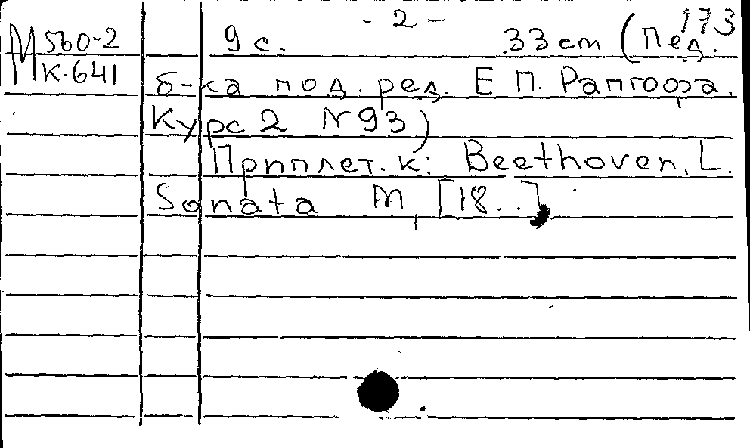 173
- 2 -
М 560-2 9 с. 33 cm (Пед.
К-641 б-ка под. ред. Е. П. Рапгофа.
Курс 2 N 93)
Приплет. к: Beethoven, L.
Sonata M, [18..]